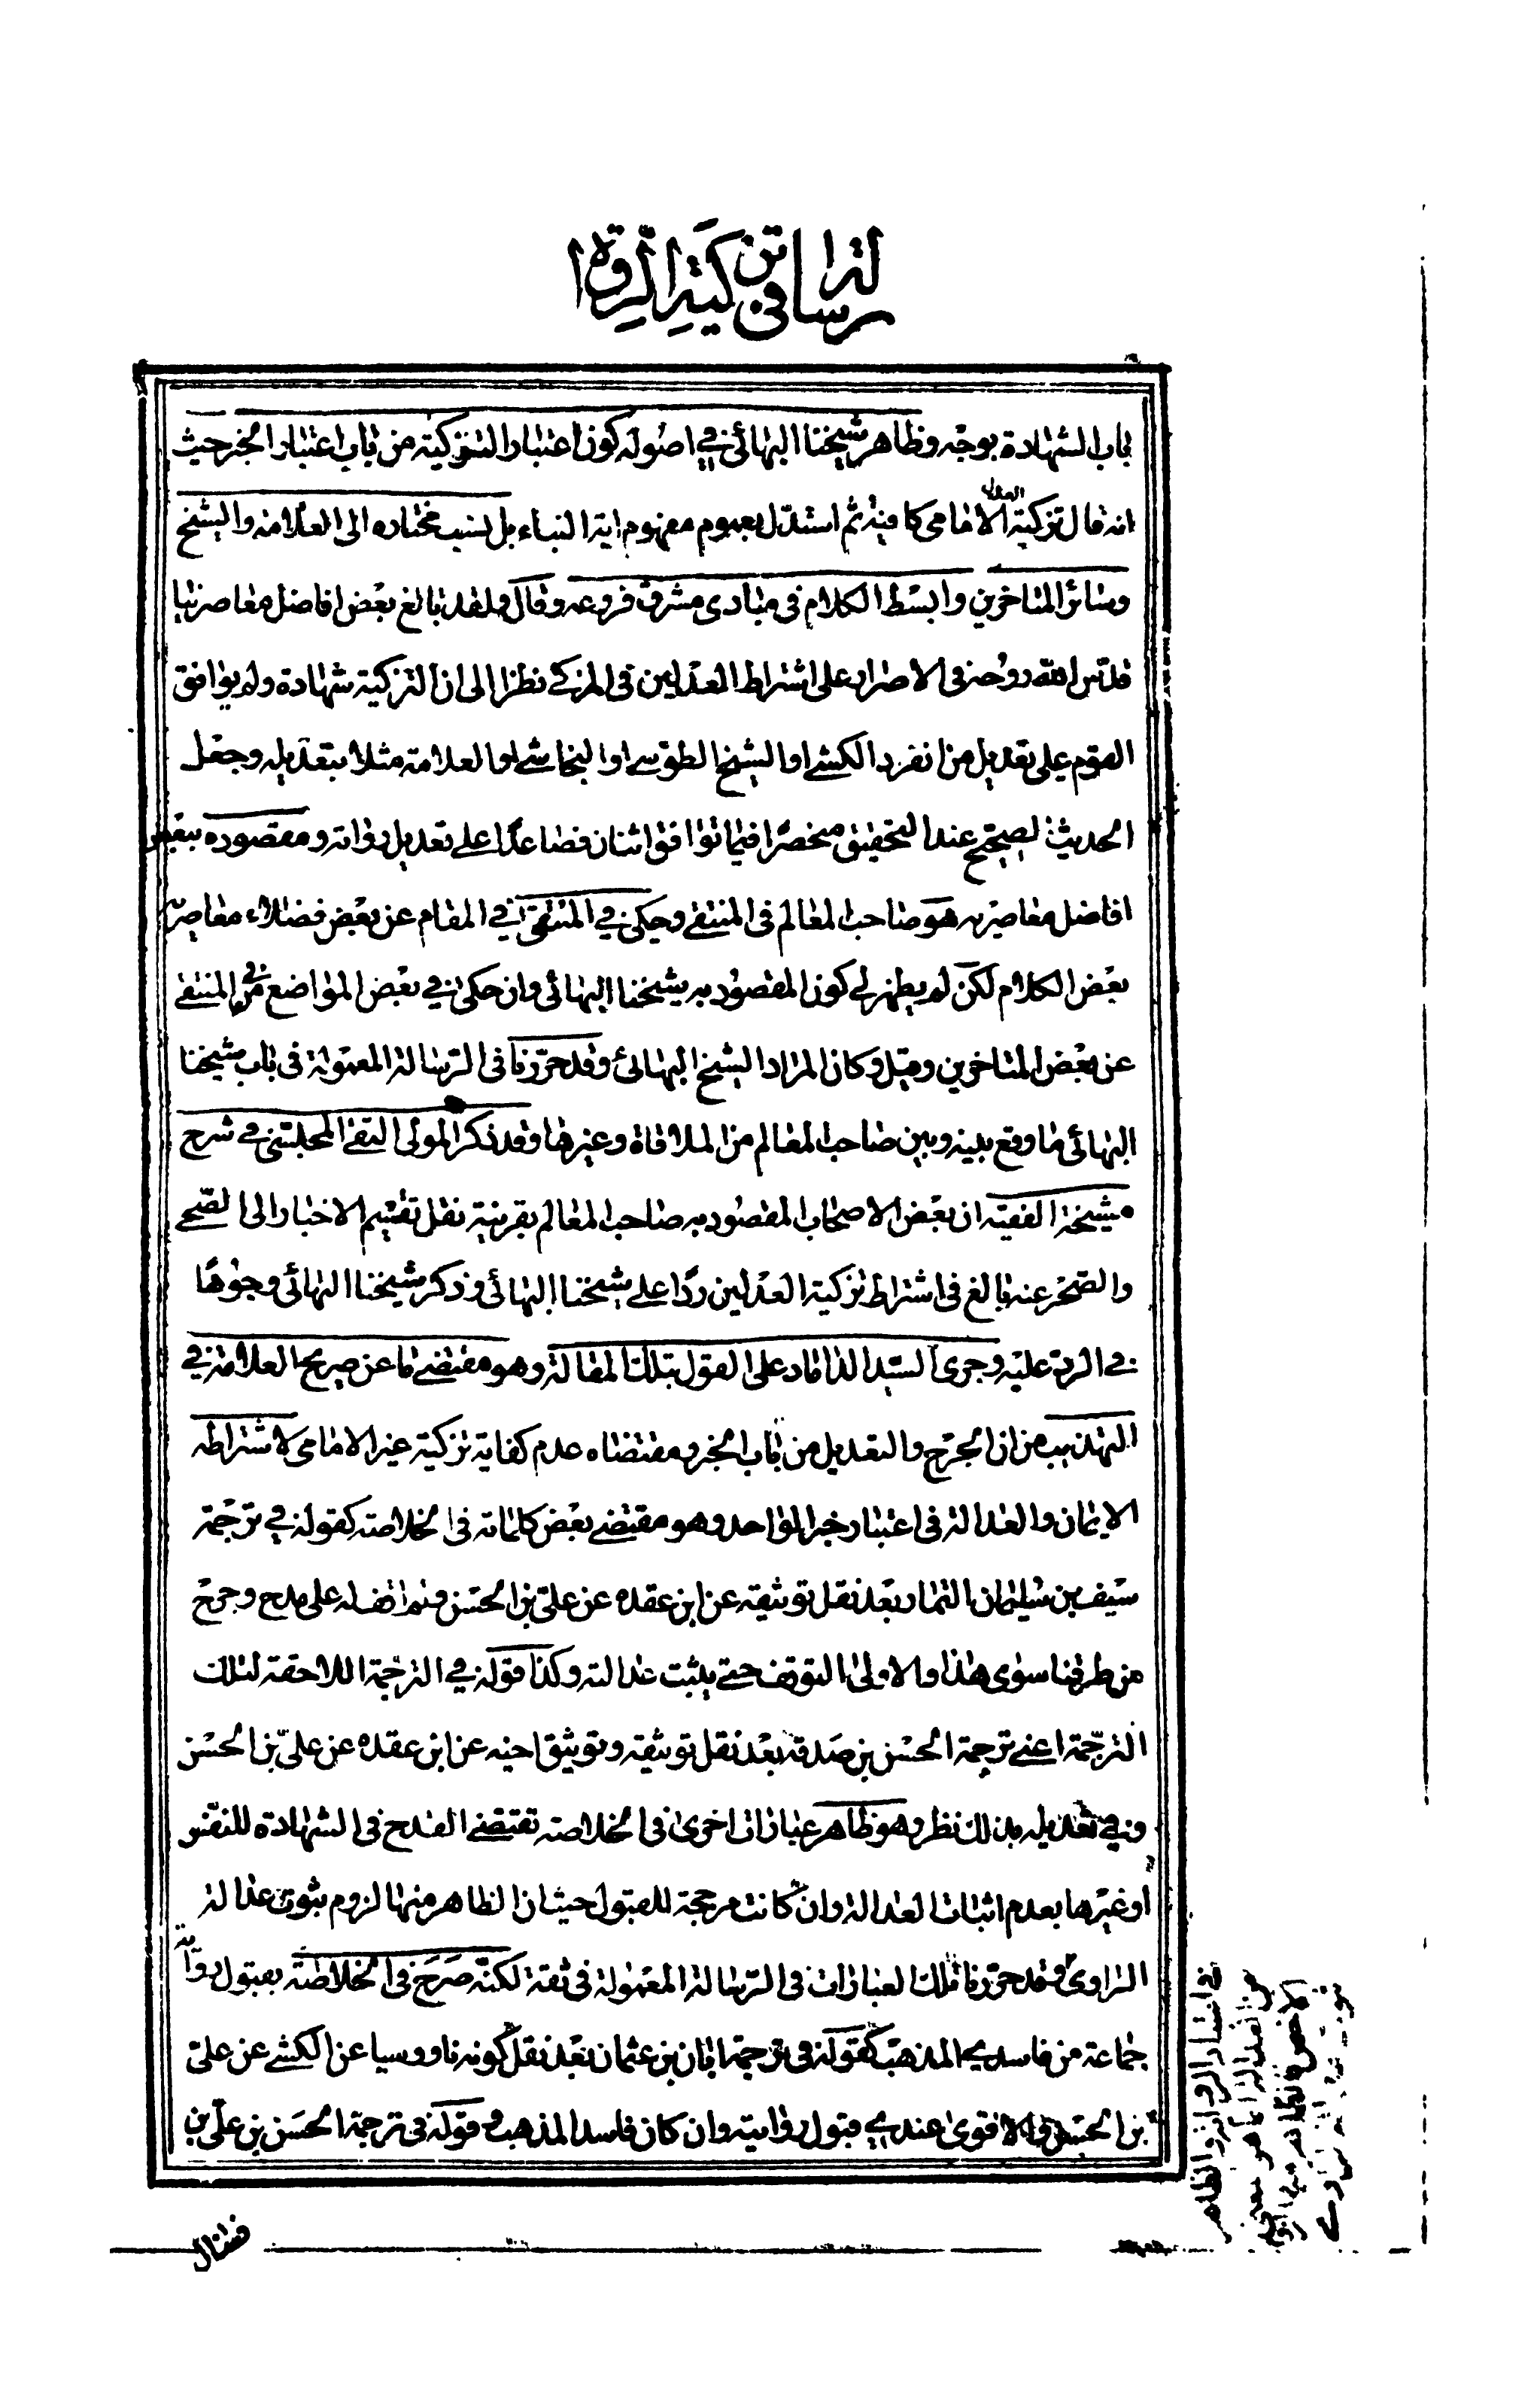 رسالة في تزكية أهل الرواة
باب الشهادة بوجه وظاهر شيخنا البهائي في اصوله كون اعتبار التزكية من باب اعتبار الخبر حيث
انه قال تزكية العدل الامامي كافية ثم استدل بعموم مفهوم اية النباء بل نسب مختاره الى العلامة والشيخ
وسائر المتاخرين وابسط الكلام في مبادى مشرق فروعه وقال ولقد بالغ بعض افاضل معاصرينا
قدس الله روحه في الاصرار على اشتراط العدلين في المزكي نظرا الى ان التزكية شهادة ولم يوافق
القوم على تعديل من انفرد الكشي او الشيخ الطوسي او النجاشي او العلامة مثلا بتعديله وجعل
الحديث الصحيح عند التحقيق منحصرا فيما توافق اثنان فصاعدا على تعديل رواته ومقصوده ببعض
افاضل معاصريه هو صاحب المعالم في المنتقى وحكى في المنتقى في المقام عن بعض فضلاء معاصريه
بعض الكلام لكن لم يظهر لي كون المقصود به شيخنا البهائي وان حكى في بعض المواضع من المنتقى
عن بعض المتاخرين وقيل وكان المراد الشيخ البهائي وقد حررنا في الرسالة المعمولة في باب شيخنا
البهائي ما وقع بينه وبين صاحب المعالم من الملاقاة وغيرها وقد ذكر المولى التقي المجلسي في شرح
مشيخة الفقيه ان بعض الاصحاب المقصود به صاحب المعالم بقرينة نقل تقسيم الاخبار الى الصحي
والصحر عنه بالغ في اشتراط تزكية العدلين ردا على شيخنا البهائي وذكر شيخنا البهائي وجوها
في الرد عليه وجرى السيد الداماد على القول بتلك المقالة وهو مقتضى ما عن صريح العلامة في
التهذيب من ان الجرح والتعديل من باب الخبر ومقتضاه عدم كفاية تزكية غير الامامي لاشتراطه
الايمان والعدالة في اعتبار خبر الواحد وهو مقتضى بعض كلماته في الخلاصة كقوله في ترجمة
سيف بن سليمان التمار بعد نقل توثيقه عن ابن عقده عن علي بن الحسن ولم اقف له على مدح وجرح
من طرقنا سوى هذا والاولى التوقف حتى يثبت عدالته وكذا قوله في الترجمة اللاحقة لتلك
الترجمة اعني ترجمة الحسن بن صدقة بعد نقل توثيقه وتوثيق اخيه عن ابن عقده عن علي بن الحسن
وفي تعديله بذلك نظر وهو ظاهر عبارات اخرى في الخلاصة تقتضى القدح في الشهادة للنفس
او غيرها بعدم اثبات العدالة وان كانت مرجحة للقبول حيث ان الظاهر منها لزوم ثبوت عدالة
الراوى وقد حررنا تلك العبارات في الرسالة المعمولة في ثقة لكنه صرح في الخلاصة بقبول رواية
جماعة من فاسدي المذهب كقوله في ترجمة ابان بن عثمان بعد نقل كونه ناووسيا عن الكشي عن علي
بن الحسن والاقوى عندي قبول روايته وان كان فاسد المذهب وقوله في ترجمة الحسن بن علي بن
فضال
في اشتراط الرواية والظاهر
من العدالة ما هو
الاخص